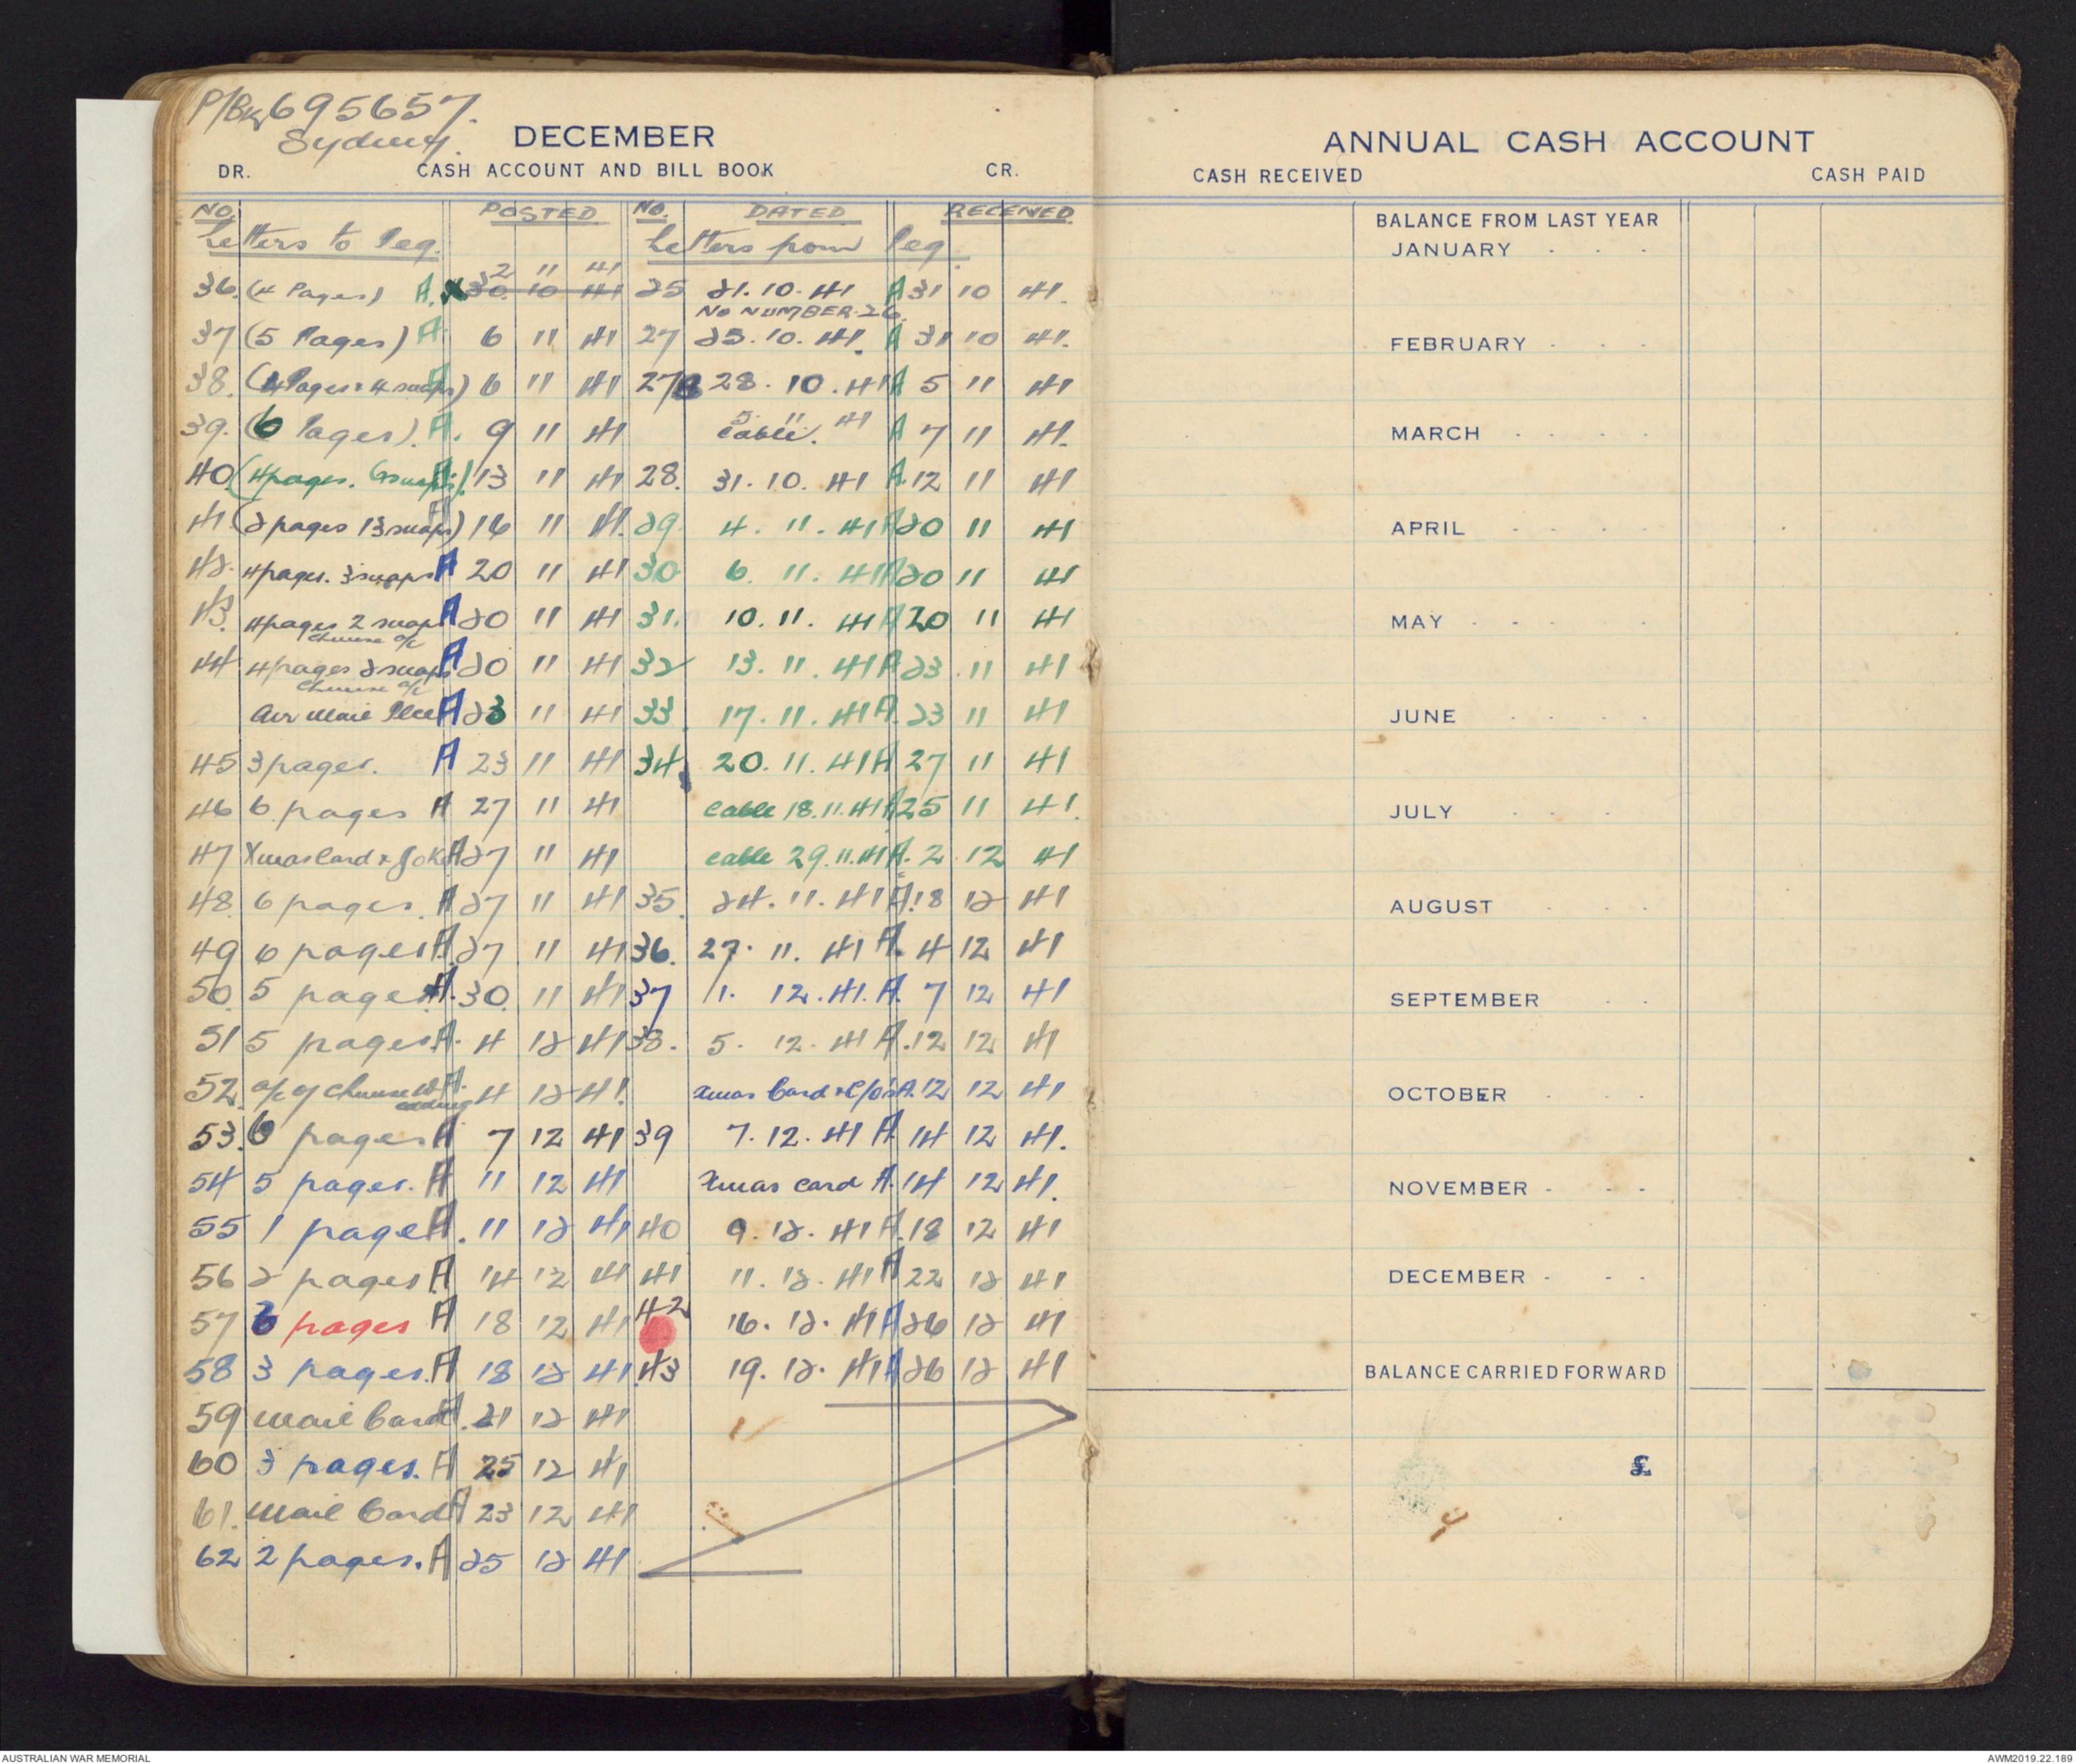 P/Bk 695657.
Sydney.
DECEMBER
DR. CASH ACCOUNT AND BILL BOOK CR.
NO. POSTED NO. DATED RECEIVED
Letters to Peg. Letters from Peg.
2 11 41
36. (4 Pages) A. x 30 10 41 25 21.10.41 A 31 10 41.
NO NUMBER 26.
37 (5 Pages) A. 6 11 41 27 25.10.41. A 31 10 41.
38. (4 Pages + 4 snaps) A 6 11 41 27a 28.10.41 A 5 11 41
5 11 41
39. (6 Pages). A. 9 11 41 Cable. A 7 11 41.
40. (4 pages. 6 snaps). A 13 11 41 28. 31.10.41 A. 12 11 41
41 (2 pages 13 snaps) A 16 11 41. 29. 4.11.41 A 20 11 41
42. 4 pages. 3 snaps A 20 11 41 30 6.11.41 A 20 11 41
43. 4 pages 2 snaps A 20 11 41 31. 10.11.41 A 20 11 41
Chinese a/c
44 4 pages 2 snaps A 20 11 41 32 13.11.41 A 23.11 41
Chinese a/c
Air Mail A 23 11 41 33 17.11.41 A. 23 11 41
45 3 pages. A 23 11 41 34 20.11.41 A 27 11 41
46 6 pages A 27 11 41 Cable 18.11.41 A 25 11 41.
47 Xmas Card + Joke A 27 11 41 cable 29.11.41 A. 2.12 41
48. 6 pages. A 27 11 41 35. 24.11.41 A. 18 12 41
49 6 pages A. 27 11 41 36. 27.11.41 A. 4 12 41
50. 5 pages A. 30. 11 41 37 1.12.41. A. 7 12 41
51 5 pages A. 4 12 41 38. 5.12.41 A. 12 12 41
52. a/c of Chinese Wedding A. 4 12 41. Xmas Card + A. 12 12 41
53. 6 pages A 7 12 41 39 7.12.41 A. 14 12 41.
54 5 pages. A 11 12 41 Xmas card A. 14 12 41.
55 1 page A. 11 12 41 40 9.12.41 A. 18 12 41
56 2 pages A 14 12 41 41 11.12.41 A 22 12 41
57 6 pages A 18 12 41 42 16.12.41 A 26 12 41
58 3 pages. A 18 12 41. 43 19.12.41 A 26 12 41
59 Mail Card A. 21 12 41
60 3 pages. A 25 12 41
61. Mail Card A 23 12 41
62 2 pages. A 25 12 41
ANNUAL CASH ACCOUNT
CASH RECEIVED CASH PAID
BALANCE FROM LAST YEAR
JANUARY
FEBRUARY
MARCH
APRIL
MAY
JUNE
JULY
AUGUST
SEPTEMBER
OCTOBER
NOVEMBER
DECEMBER
BALANCE CARRIED FORWARD
£
AUSTRALIAN WAR MEMORIAL AWM2019.22.189